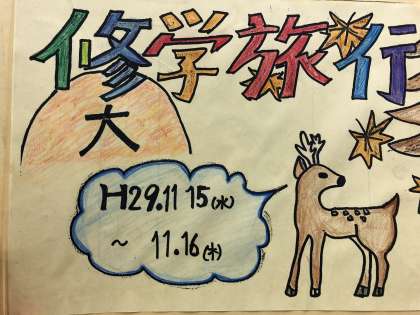 修学旅行
大
H29.11 15(水)
～ 11.16(木)